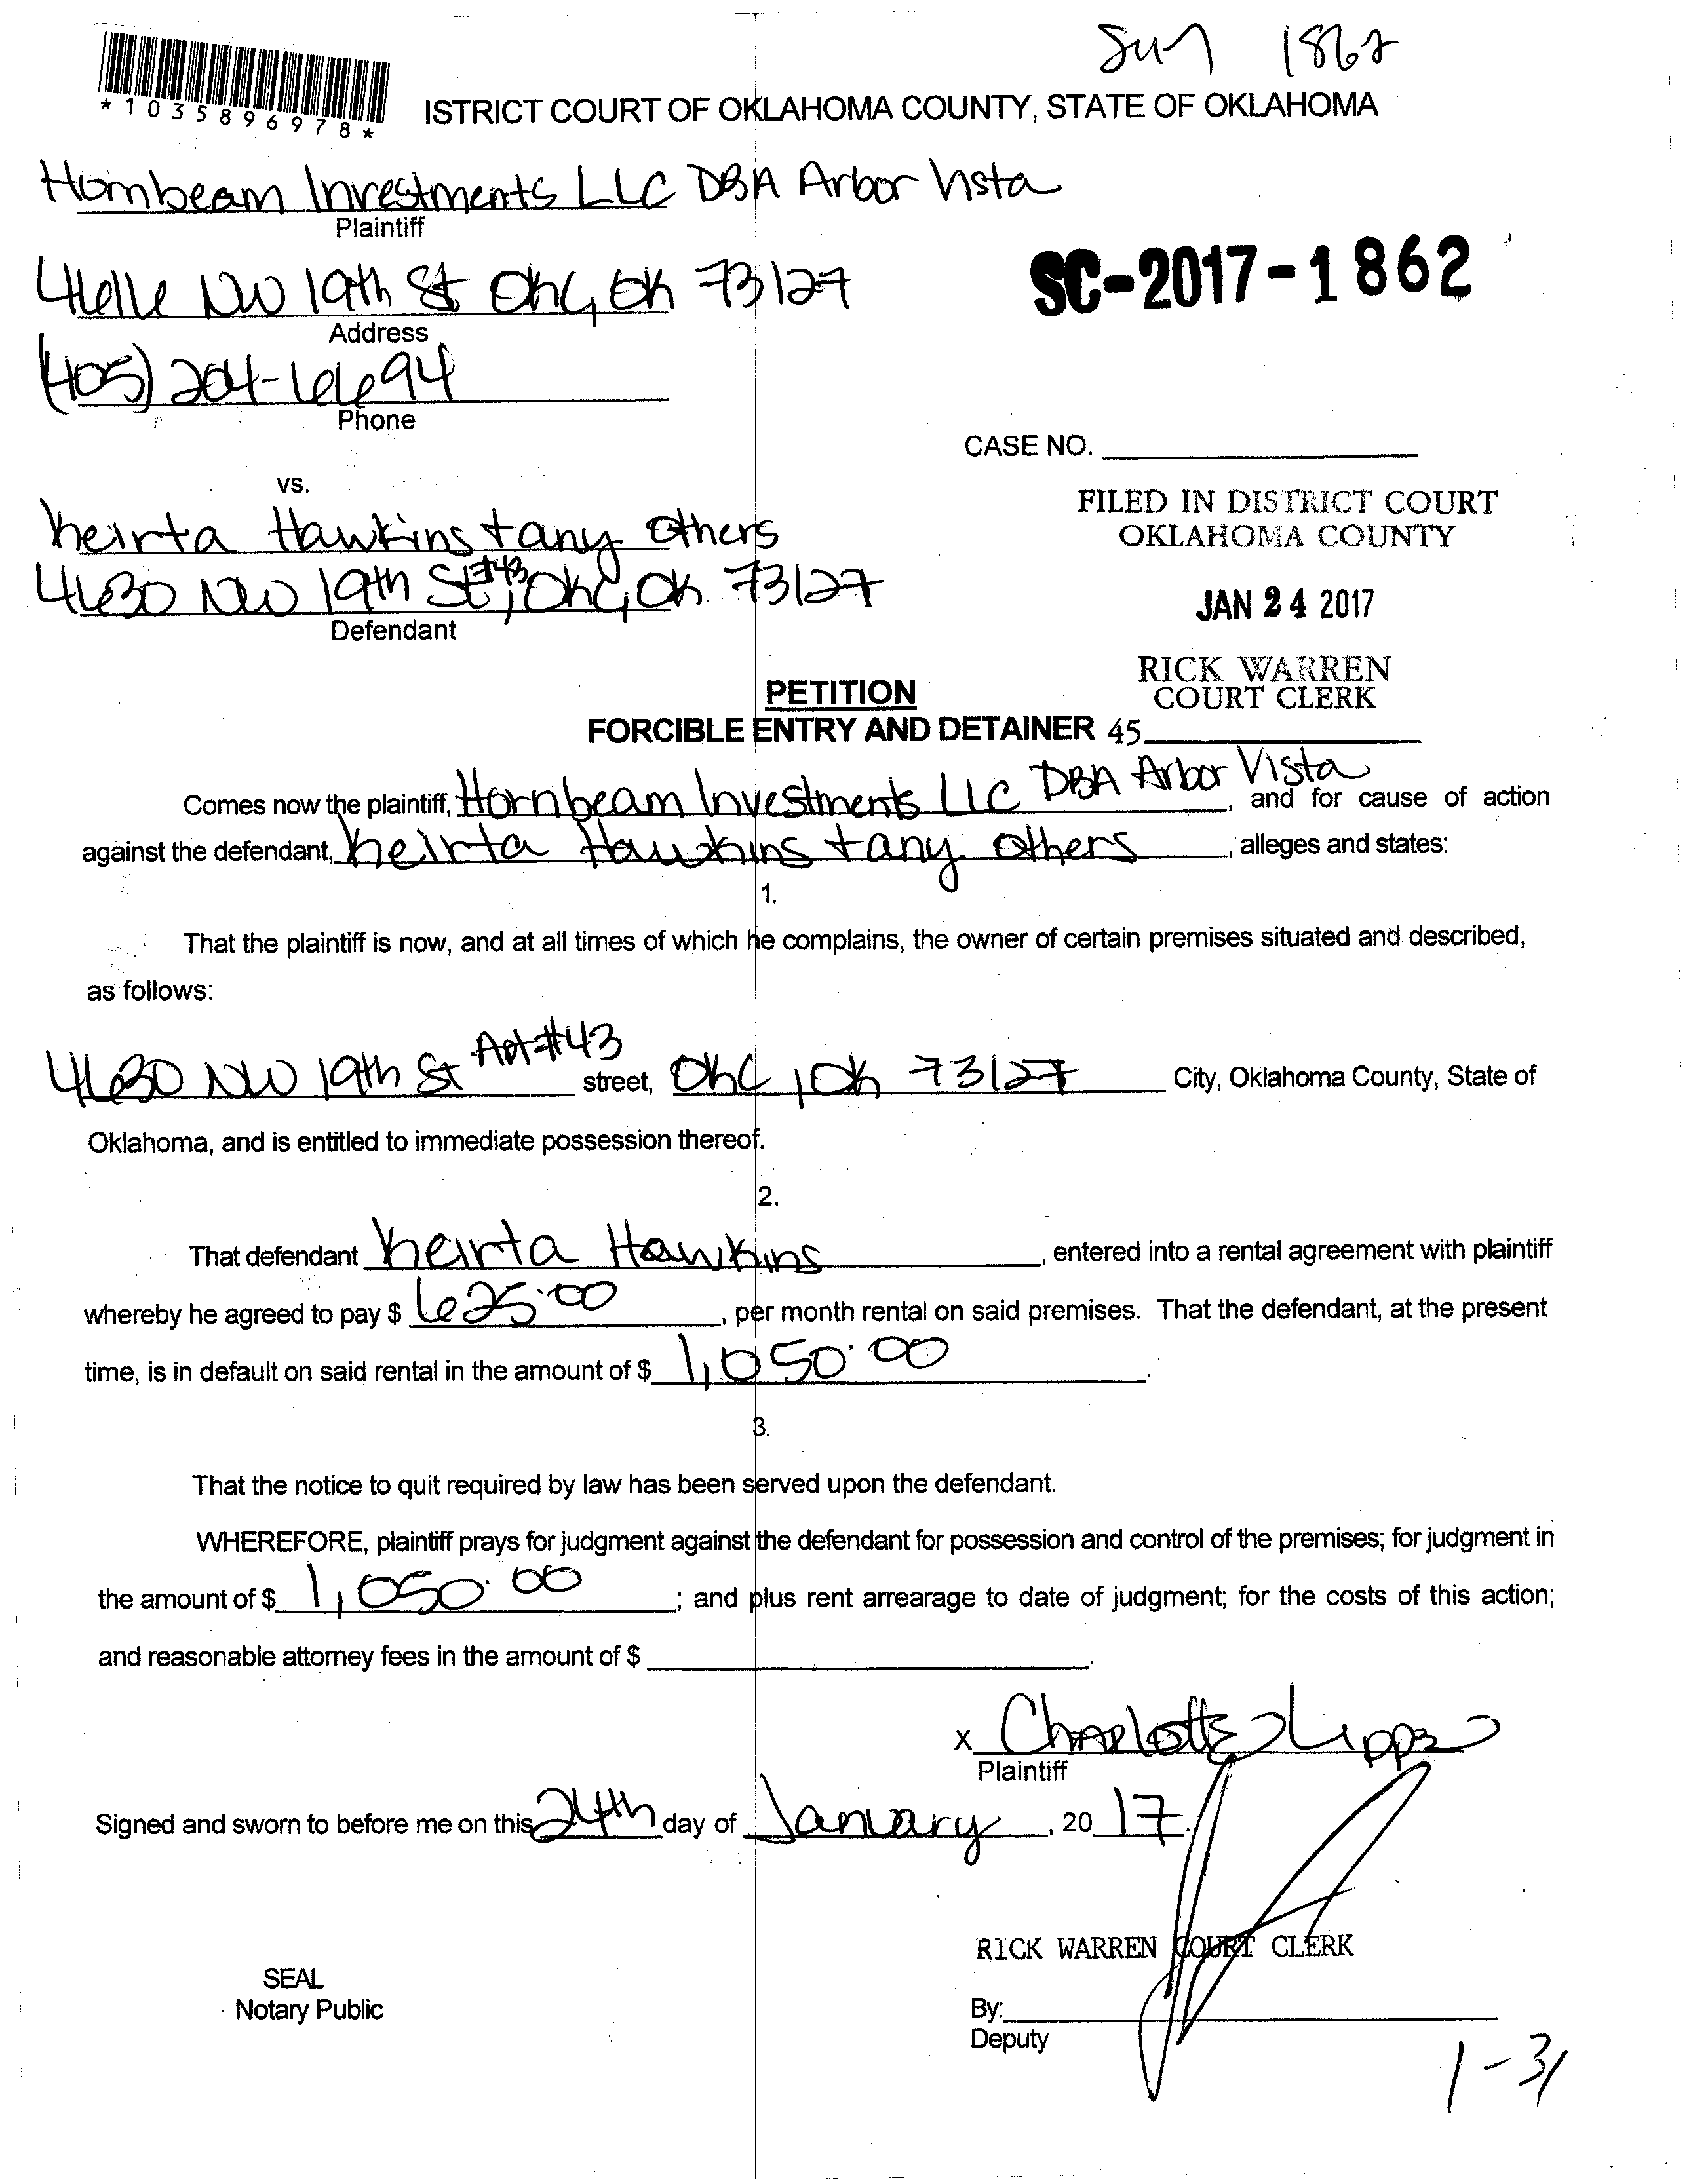 Sm 1862
*1035896978*
ISTRICT COURT OF OKLAHOMA COUNTY, STATE OF OKLAHOMA
Hornbeam Investments LLC DBA Arbor Vista
Plaintiff
NW 19th St OKC, OK 73127
SC-2017-1862
Address
(405) 204-6694
Phone
CASE NO.
vs.
Keirta Hawkins + any others
FILED IN DISTRICT COURT
OKLAHOMA COUNTY
4630 NW 19th St #43, OKC, OK 73127
Defendant
JAN 24 2017
RICK WARREN
COURT CLERK
PETITION
FORCIBLE ENTRY AND DETAINER 45
Comes now the plaintiff, Hornbeam Investments LLC DBA Arbor Vista, and for cause of action
against the defendant, Keirta Hawkins + any others, alleges and states:
1.
That the plaintiff is now, and at all times of which he complains, the owner of certain premises situated and described,
as follows:
4630 NW 19th St Apt #43 street, OKC, OK 73127 City, Oklahoma County, State of
Oklahoma, and is entitled to immediate possession thereof.
2.
That defendant Keirta Hawkins, entered into a rental agreement with plaintiff
whereby he agreed to pay $ 625.00, per month rental on said premises. That the defendant, at the present
time, is in default on said rental in the amount of $ 1,050.00.
3.
That the notice to quit required by law has been served upon the defendant.
WHEREFORE, plaintiff prays for judgment against the defendant for possession and control of the premises; for judgment in
the amount of $ 1,050.00; and plus rent arrearage to date of judgment; for the costs of this action;
and reasonable attorney fees in the amount of $ .
x Charlotte Lipps
Plaintiff
Signed and sworn to before me on this 24th day of January, 20 17.
RICK WARREN COURT CLERK
SEAL
Notary Public
By:
Deputy
1-31